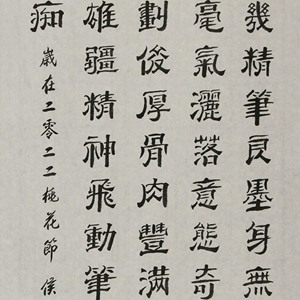 幾精筆良墨身無
毫氣灑落意態奇
劃俊厚骨肉豐满
雄疆精神飛動筆
痴
歲在二零二二桃花節 侯